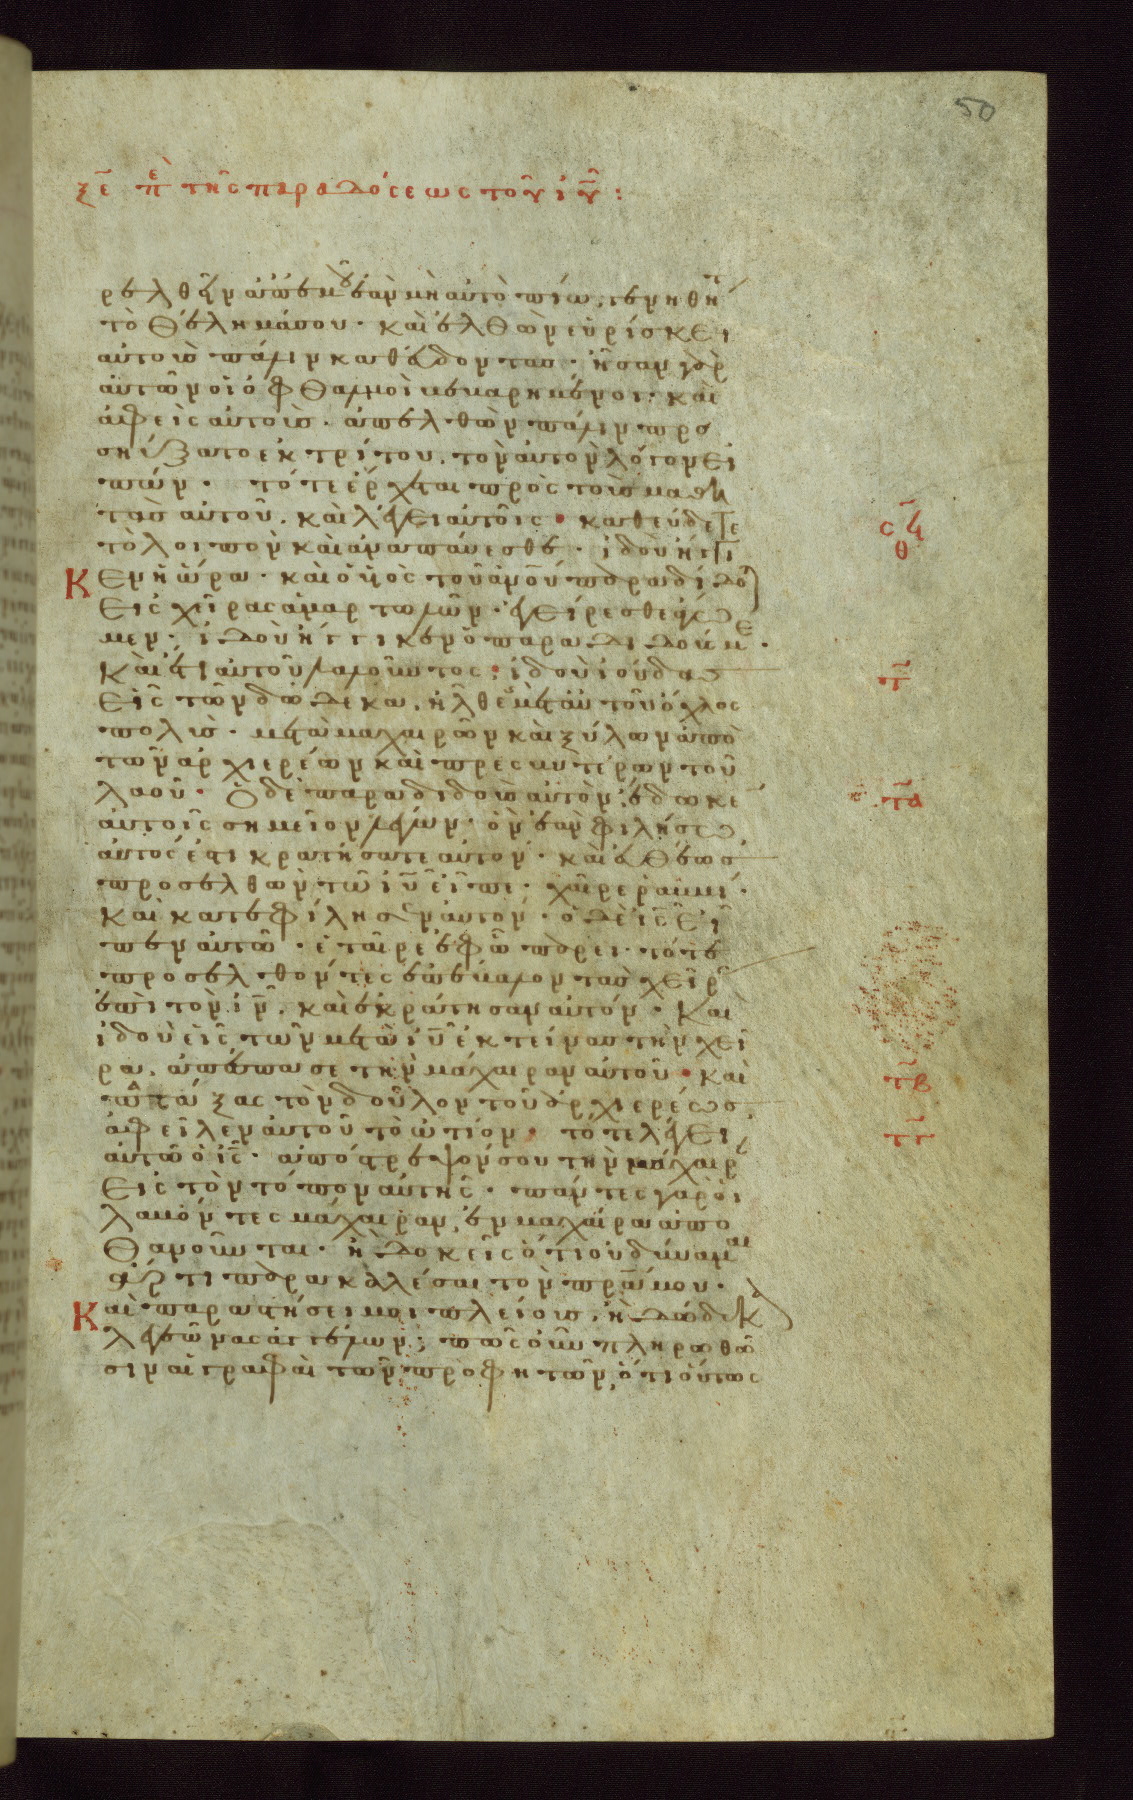 50
ξε̄ πὲ τῆς παραδόσεως τοῦ ἰῦ̄:
ρελθεῖν ἀπ' ἐμοῦ ἐὰν μὴ αὐτὸ πίω, γενηθήτ
τὸ θέλημά σου· καὶ ἐλθὼν εὑρίσκει
αὐτοὺς πάλιν καθεύδοντας· ἦσαν γὰρ
αὐτῶν οἱ ὀφθαλμοὶ βεβαρημένοι· καὶ
ἀφεὶς αὐτοὺς. ἀπελθὼν πάλιν προ
σηύξατο ἐκ τρίτου. τὸν αὐτὸν λόγον εἰ
πών· τότε ἔρχεται πρὸς τοὺς μαθη
τὰς αὐτοῦ. καὶ λέγει αὐτοῖς· καθεύδετε
τὸ λοιπὸν καὶ ἀναπαύεσθε· ἰδοὺ ἤγγι
Κεν ἡ ὥρα· καὶ ὁ υἱὸς τοῦ ἀνοῦ παραδίδο
εἰς χεῖρας ἁμαρτωλῶν· ἐγείρεσθε ἄγω
μεν· ἰδοὺ ἤγγικεν ὁ παραδιδούς με·
Καὶ ἔτι αὐτοῦ λαλοῦντος· ἰδοὺ ἰούδας
εἷς τῶν δώδεκα. ἦλθε καὶ μετ' αὐτοῦ ὄχλος
πολὺς· μετὰ μαχαιρῶν καὶ ξύλων ἀπὸ
τῶν ἀρχιερέων καὶ πρεσβυτέρων τοῦ
λαοῦ· Ὁ δὲ παραδιδοὺς αὐτὸν, ἔδωκε
αὐτοῖς σημεῖον λέγων· ὃν ἐὰν φιλήσω
αὐτός ἐστι κρατήσατε αὐτόν· καὶ εὐθέως
προσελθὼν τῶ ἰῦ εἶπε· χαῖρε ῥαββί·
Καὶ κατεφίλησεν αὐτόν· ὁ δὲ ἰς̄ εἶ
πεν αὐτῶ· ἑταῖρε ἐφ' ᾧ πάρει· τότε
προσελθόντες ἐπέβαλον τὰς χεῖρ
ἐπὶ τὸν ἰν̄. καὶ ἐκράτησαν αὐτόν· Καὶ
ἰδοὺ εἷς τῶν μετὰ ἰῦ ἐκτείνας τὴν χεῖ
ρα. ἀπέσπασε τὴν μάχαιραν αὐτοῦ· καὶ
πατάξας τὸν δοῦλον τοῦ ἀρχιερέως
ἀφεῖλεν αὐτοῦ τὸ ὠτίον· τότε λέγει
αὐτῶ ὁ ἰς̄· ἀπόστρεψόν σου τὴν μάχαιρ
εἰς τὸν τόπον αὐτῆς· πάντες γὰρ οἱ
λαβόντες μάχαιραν, ἐν μαχαίρα ἀπο
θανοῦνται· ἢ δοκεῖς ὅτι οὐ δύναμαι
ἄρτι παρακαλέσαι τὸν πρᾱ μου·
Καὶ παραστήσει μοι πλείους, ἢ δώδεκα
λεγεῶνας ἀγγέλων; πῶς οὖν πληρωθῶ
σιν αἱ γραφαὶ τῶν προφητῶν, ὅτι οὕτως
θ
τ̄
τ̄α
τ̄β
τ̄γ